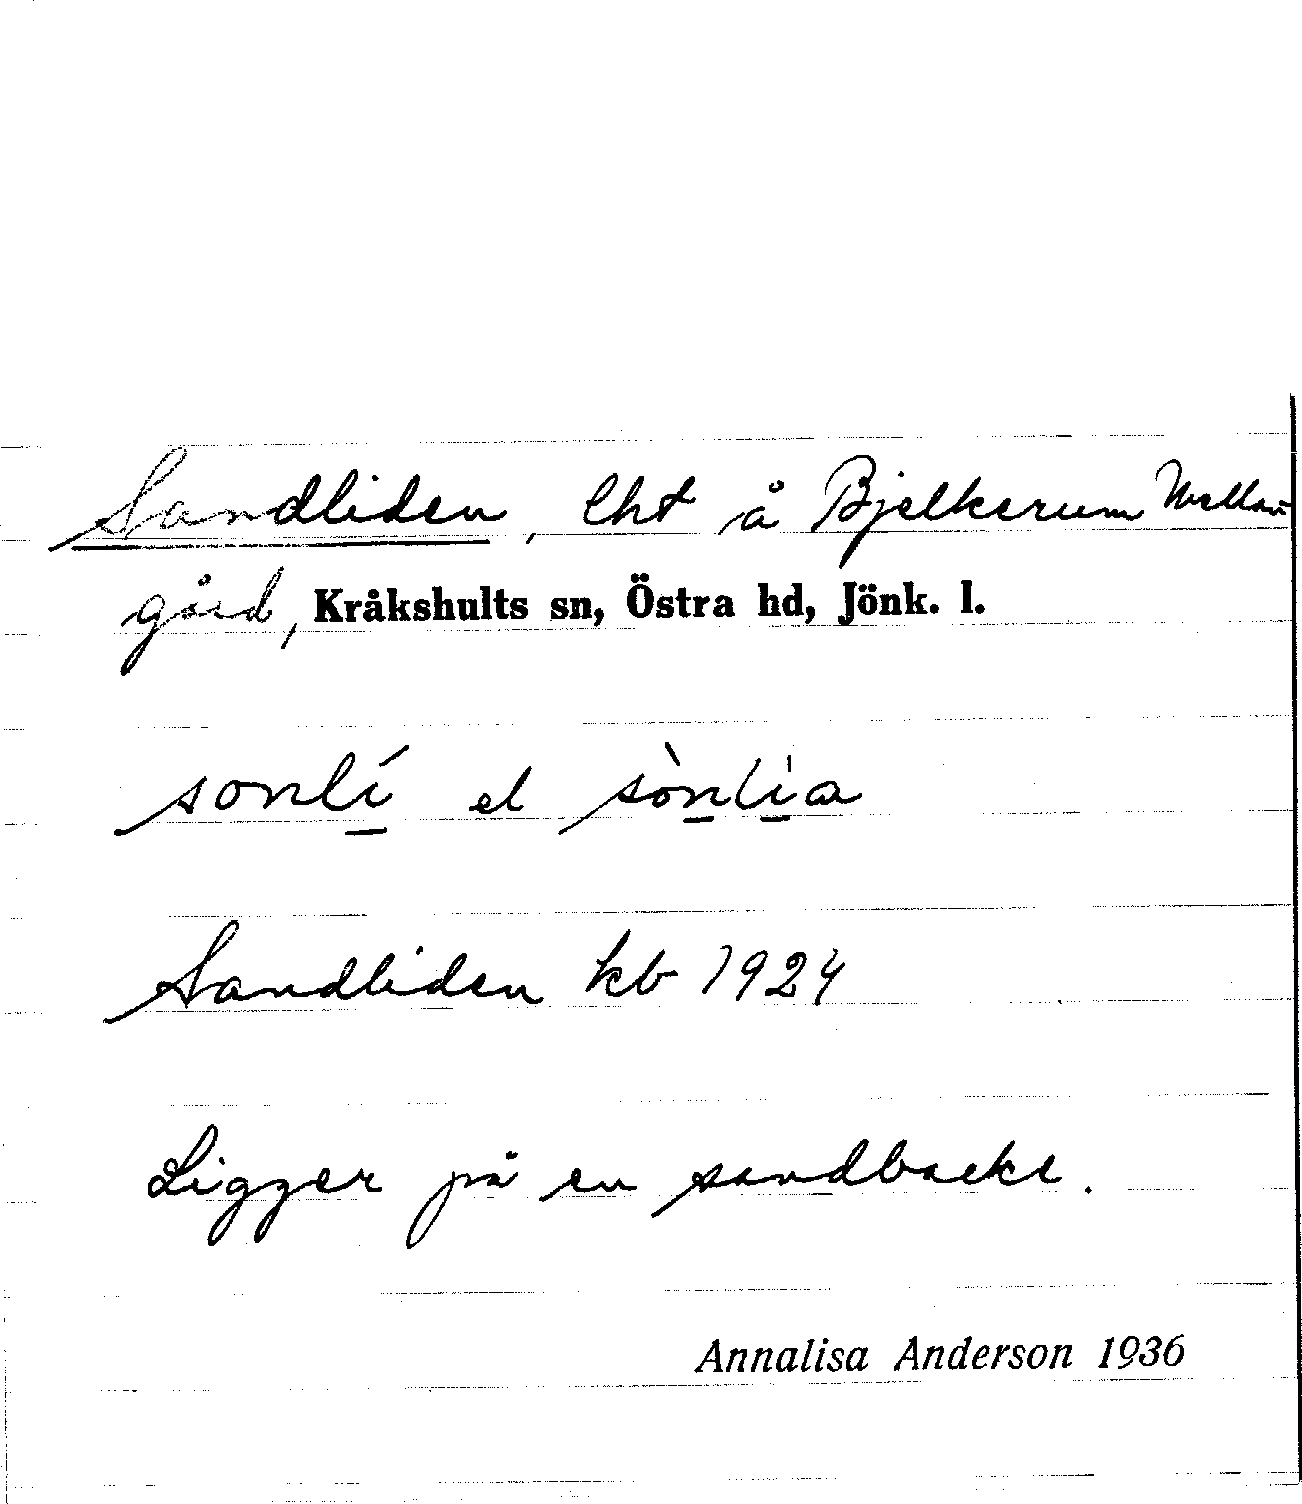 Sandliden, lht å Bjelkerum Mellan
gård, Kråkshults sn, Östra hd, Jönk. l.
sonlí el sònlìa
Sandliden kb 1924
Ligger på en sandbacke.
Annalisa Anderson 1936